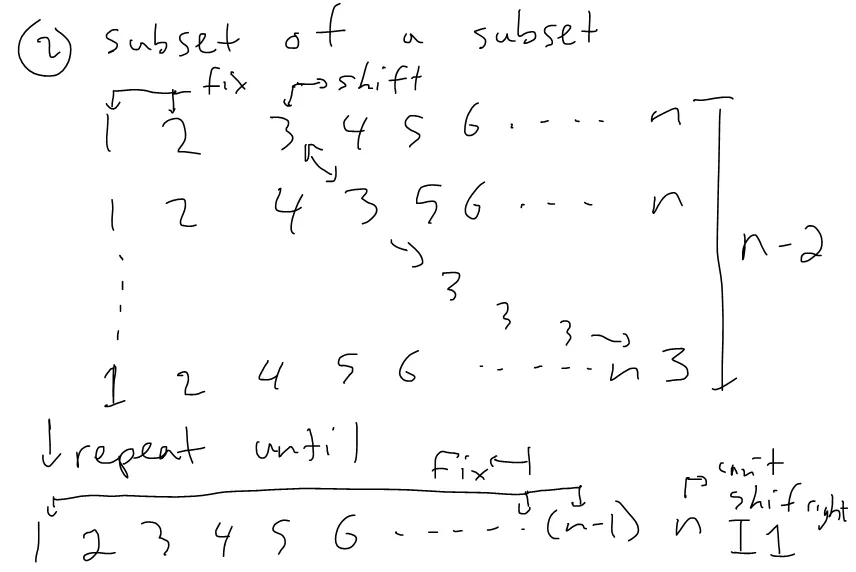 ② subset of a subset
fix shift
1 2 3 4 5 6 ..... n
1 2 4 3 5 6 ... n
n-2
3
3
3
1 2 4 5 6 ...... n 3
repeat until
Fix
can't
shif right
1 2 3 4 5 6 ...... (n-1) n I 1